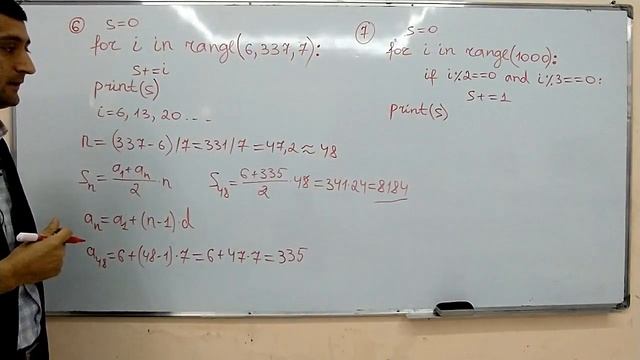 ⑥ s=0
for i in range(6,337,7):
s+=i
print(s)
i=6, 13, 20...
n=(337-6)/7=331/7=47,2≈48
Sₙ=(a₁+aₙ)/2·n S₄₈=(6+335)/2·48=341·24=8184
aₙ=a₁+(n-1)·d
a₄₈=6+(48-1)·7=6+47·7=335
⑦ s=0
for i in range(1000):
if i%2==0 and i%3==0:
s+=1
print(s)